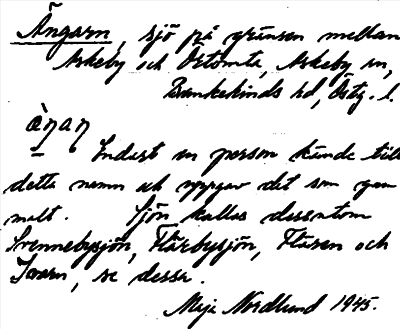 Ängarn, sjö på gränsen mellan
Askeby och Östomta, Askeby sn,
Bankekinds hd, Östg. l.
àŋaŋ
Endast en person kände till
detta namn och uppgav det som gam
malt. Sjön kallas dessutom
Svennebysjön, Flärbysjön, Flären och
, se dessa.
Maja Nordlund 1945.